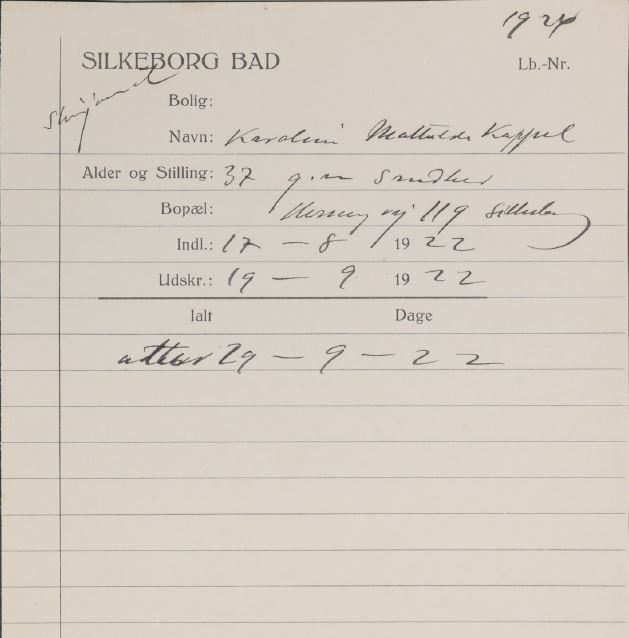 1924
SILKEBORG BAD
Lb.-Nr.
Bolig:
Navn: Karoline Mathilde Kappel
Alder og Stilling: 37 g. m
Bopæl: vej 119
Indl.: 17 – 8 1922
Udskr.: 19 – 9 1922
Ialt Dage
attest 29 – 9 – 22